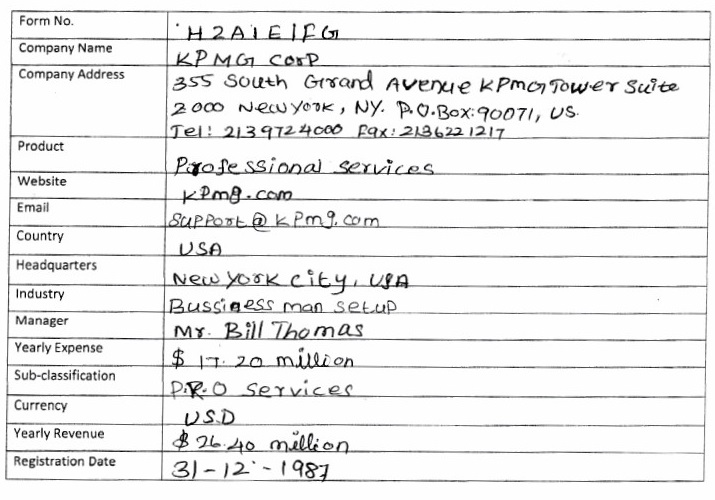 Form No. H2A1E1FG
Company Name KPMG Corp
Company Address 355 South Grand Avenue KPMG Tower Suite
2000 New York, NY. P.O.Box:90071, US.
Tel: 2139724000 Fax: 2136221217
Product Professional services
Website kpmg.com
Email support@kpmg.com
Country USA
Headquarters New York city, USA
Industry Bussiness man setup
Manager Mr. Bill Thomas
Yearly Expense $ 17.20 million
Sub-classification P.R.O Services
Currency USD
Yearly Revenue $ 26.40 million
Registration Date 31-12-1987